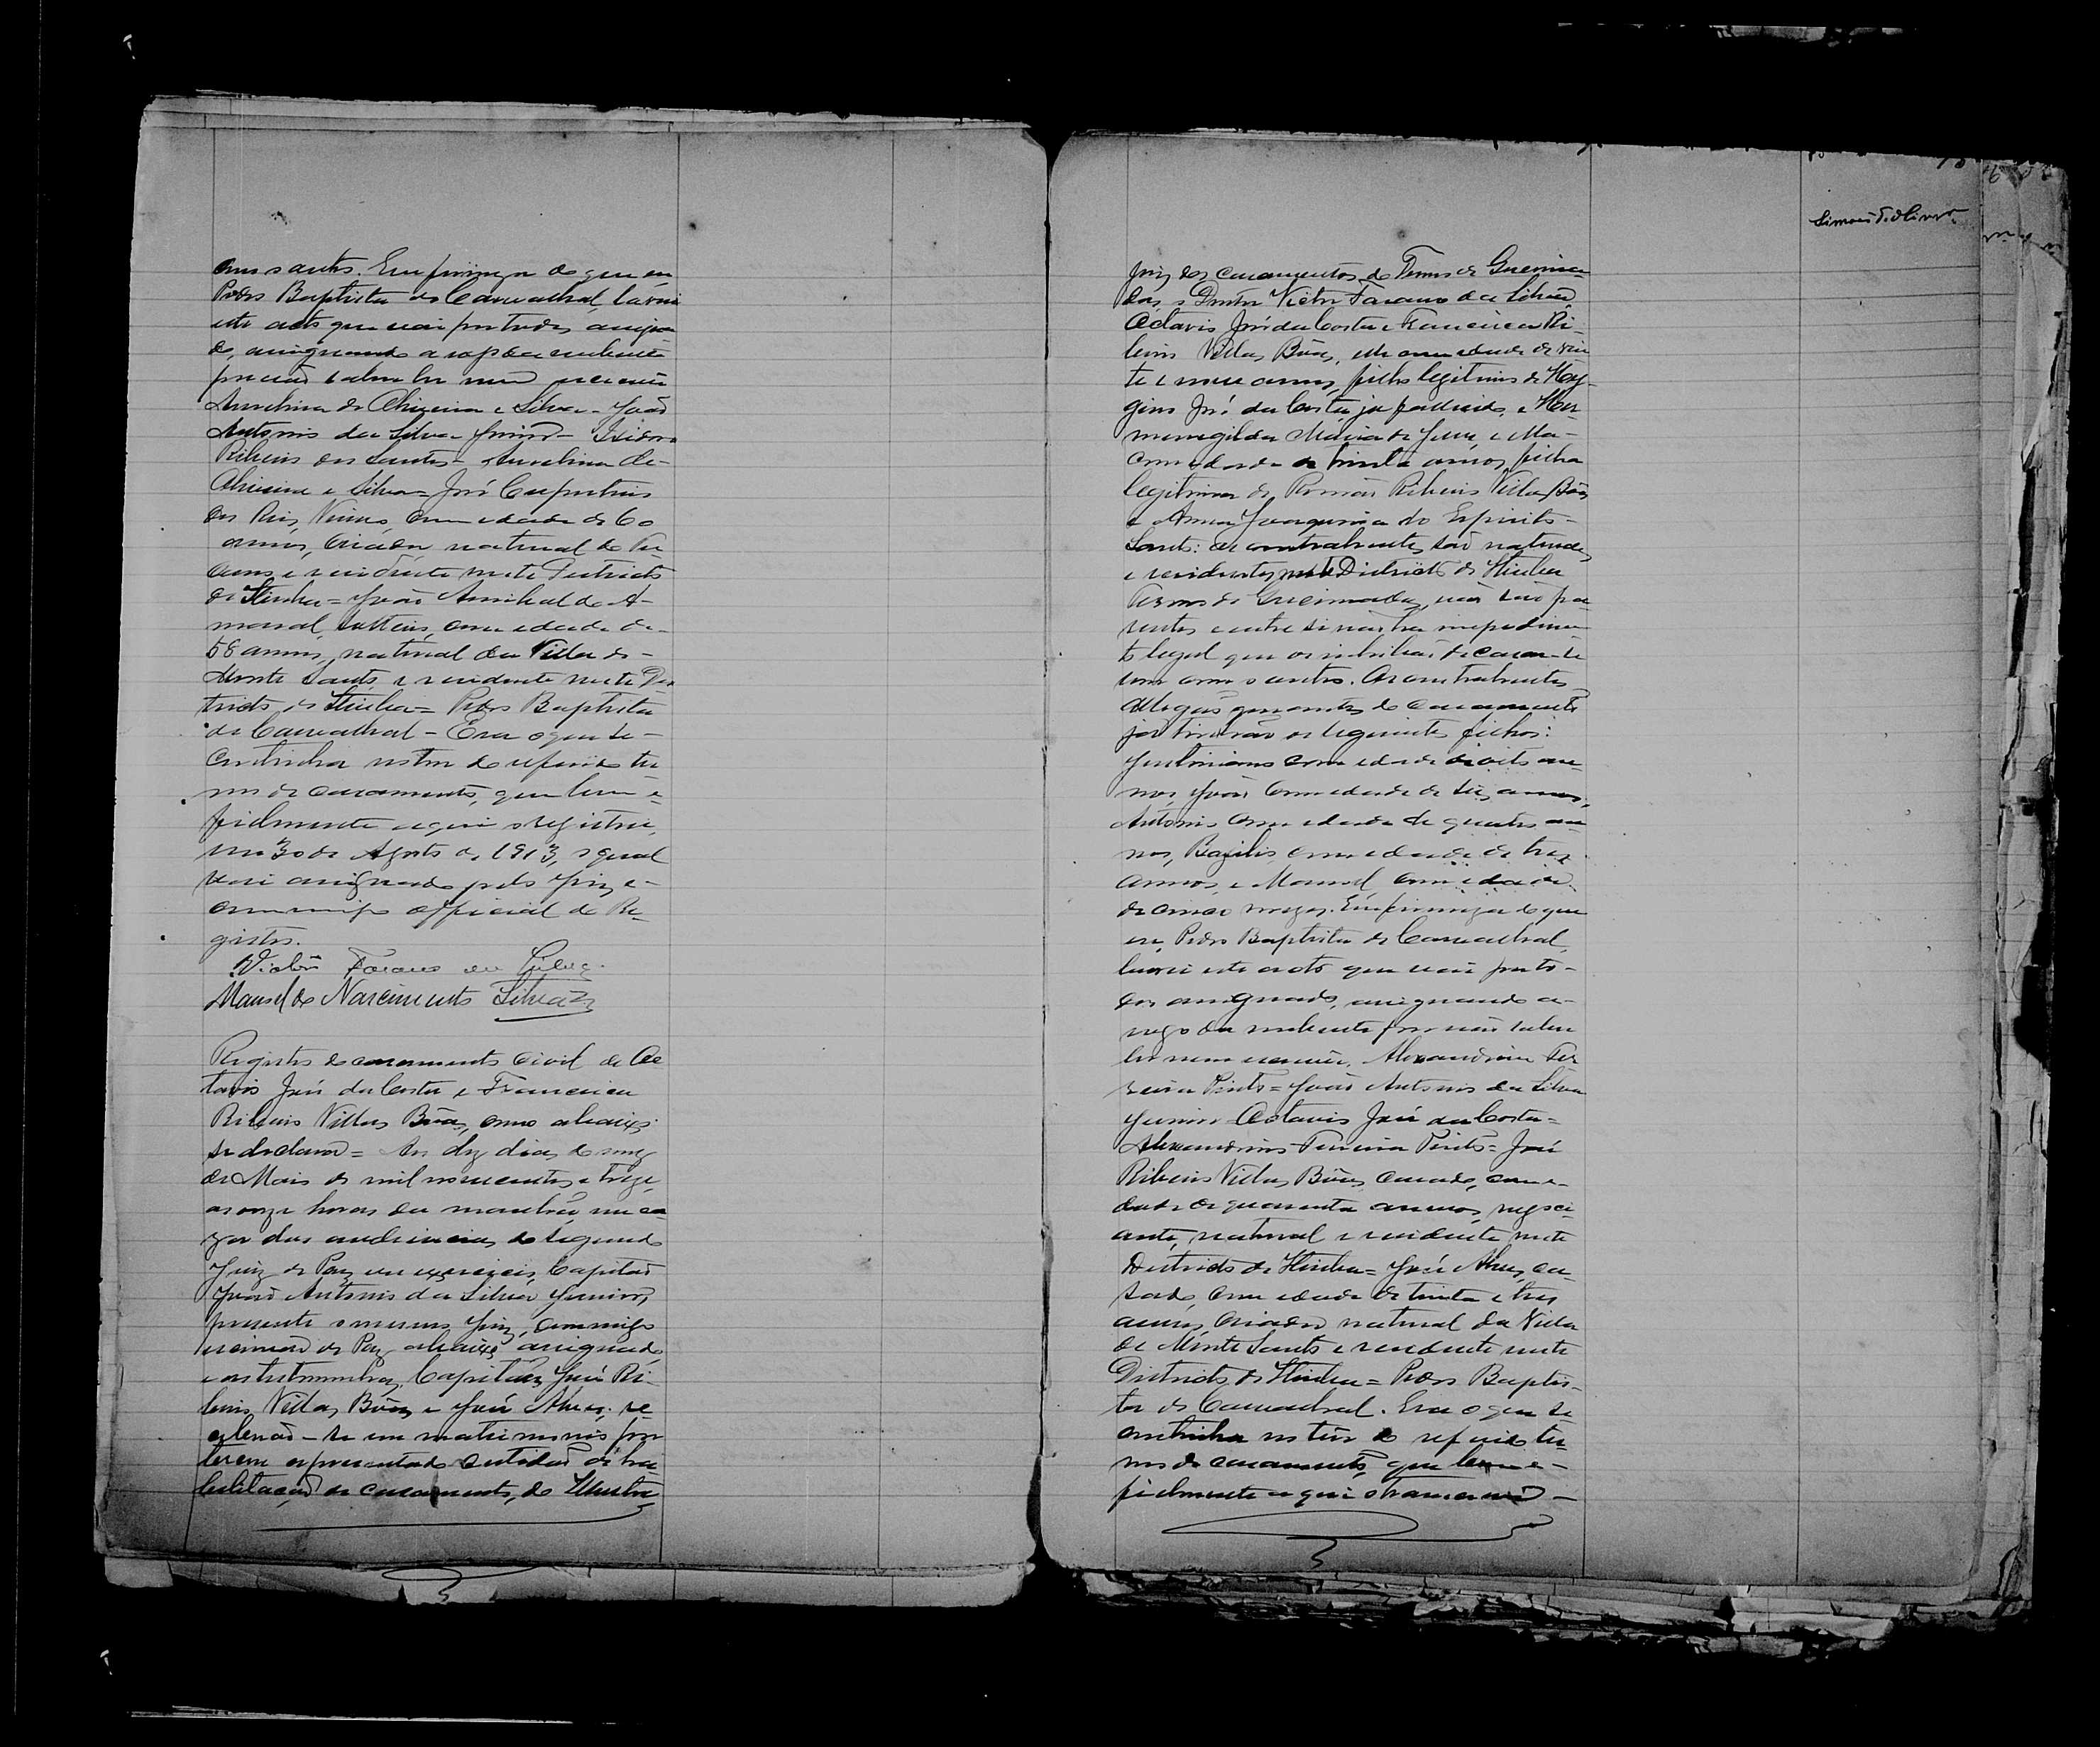 com s outro. Em firmeza do que eu
Pedro Baptista de Carvalhal, lavrei
este acto que vai por todos assigna
do, assignando a rogo da nubente
por não saber ler nem escrever
Aurelina de Oliveira e Silva - João
Antonio da Silva Junior - Izidoro
Ribeiro dos Santos - Aurelina de
Oliveira e Silva = José
dos Reis, Viuvo, com edade de 60
annos, Criador natural de Tu
cano e residente neste Districto
de Itiuba = João Annibal de A-
maral, solteiro, com edade de
58 annos, natural da Villa de
Monte Santo e residente neste Dis
tricto de Itiuba = Pedro Baptista
de Carvalhal - Era o que se
continha no teor do referido ter
mo de casamento, que bem e
fielmente aqui o registrei,
em 30 de Agosto de 1913, o qual
vai assignado pelo Juiz e
commigo official do Re-
gistro.
Victor da Silva
Manoel do Nascimento Silva
Registro do casamento Civil de Oc
tavio José da Costa e Francisca
Ribeiro Villas Bôas, como abaixo
se declara = Aos dez dias do mez
de Maio de mil novecentos e treze,
as onze horas da manhã, na ca
za das audiencias do segundo
Juiz de Paz em exercicio, Capitão
João Antonio da Silva Junior,
presente o mesmo Juiz, commigo
escrivão de Paz abaixo assignado
e as testemunhas, Capitão José Ri-
beiro Villas Bôas e José Alves; re-
ceberão-se em matrimonio por
terem apresentado Certidão de ha-
bilitação de casamento, do Illustre
Simões d'Oliveira
Juiz dos casamentos do Termo de Queima
das, o Doutor Victor da Silva,
Octavio José da Costa e Francisca Ri-
beiro Villas Bôas, elle com edade de vin
te e nove annos, filho legitimo de Hey-
gino José da Costa, ja fallecido, e Her-
menegilda Maria de Jesus, e ella
com edade de trinta annos, filha
legitima de Romão Ribeiro Villas Bôas
e Anna Joaquina do Espirito
Santo: os contrahentes são naturaes
e residentes neste Districto de Itiuba
Termo de Queimadas, não são pa
rentes e entre si não ha impedimen
to legal que os inhibão de casar-se
um com o outro. Os contrahentes
allegão que antes do casamento
já tiverão os seguintes filhos:
Justiniano com edade de oito an
nos, João com edade de seis annos,
Antonio com edade de quatro an
nos, Bazilio com edade de trez
annos, e Manoel, com edade
de cinco mezes. Em firmeza do que
eu, Pedro Baptista de Carvalhal,
lavrei este acto que vai por to-
dos assignado, assignando a
rogo da nubente por não saber
ler nem escrever, Alexandrino Fer
reira Pinto = João Antonio da Silva
Junior = Octavio José da Costa =
Alexandrino Ferreira Pinto = José
Ribeiro Villas Bôas, Casado, com e
dade de quarenta annos, negoci-
ante, natural e residente neste
Districto de Itiuba = José Alves, ca-
sado, com edade de trinta e trez
annos, Criador natural da Villa
de Monte Santo e residente neste
Districto de Itiuba = Pedro Baptis-
ta de Carvalhal. Era o que se
continha no teor do referido ter
mo de casamento, que bem e
fielmente aqui